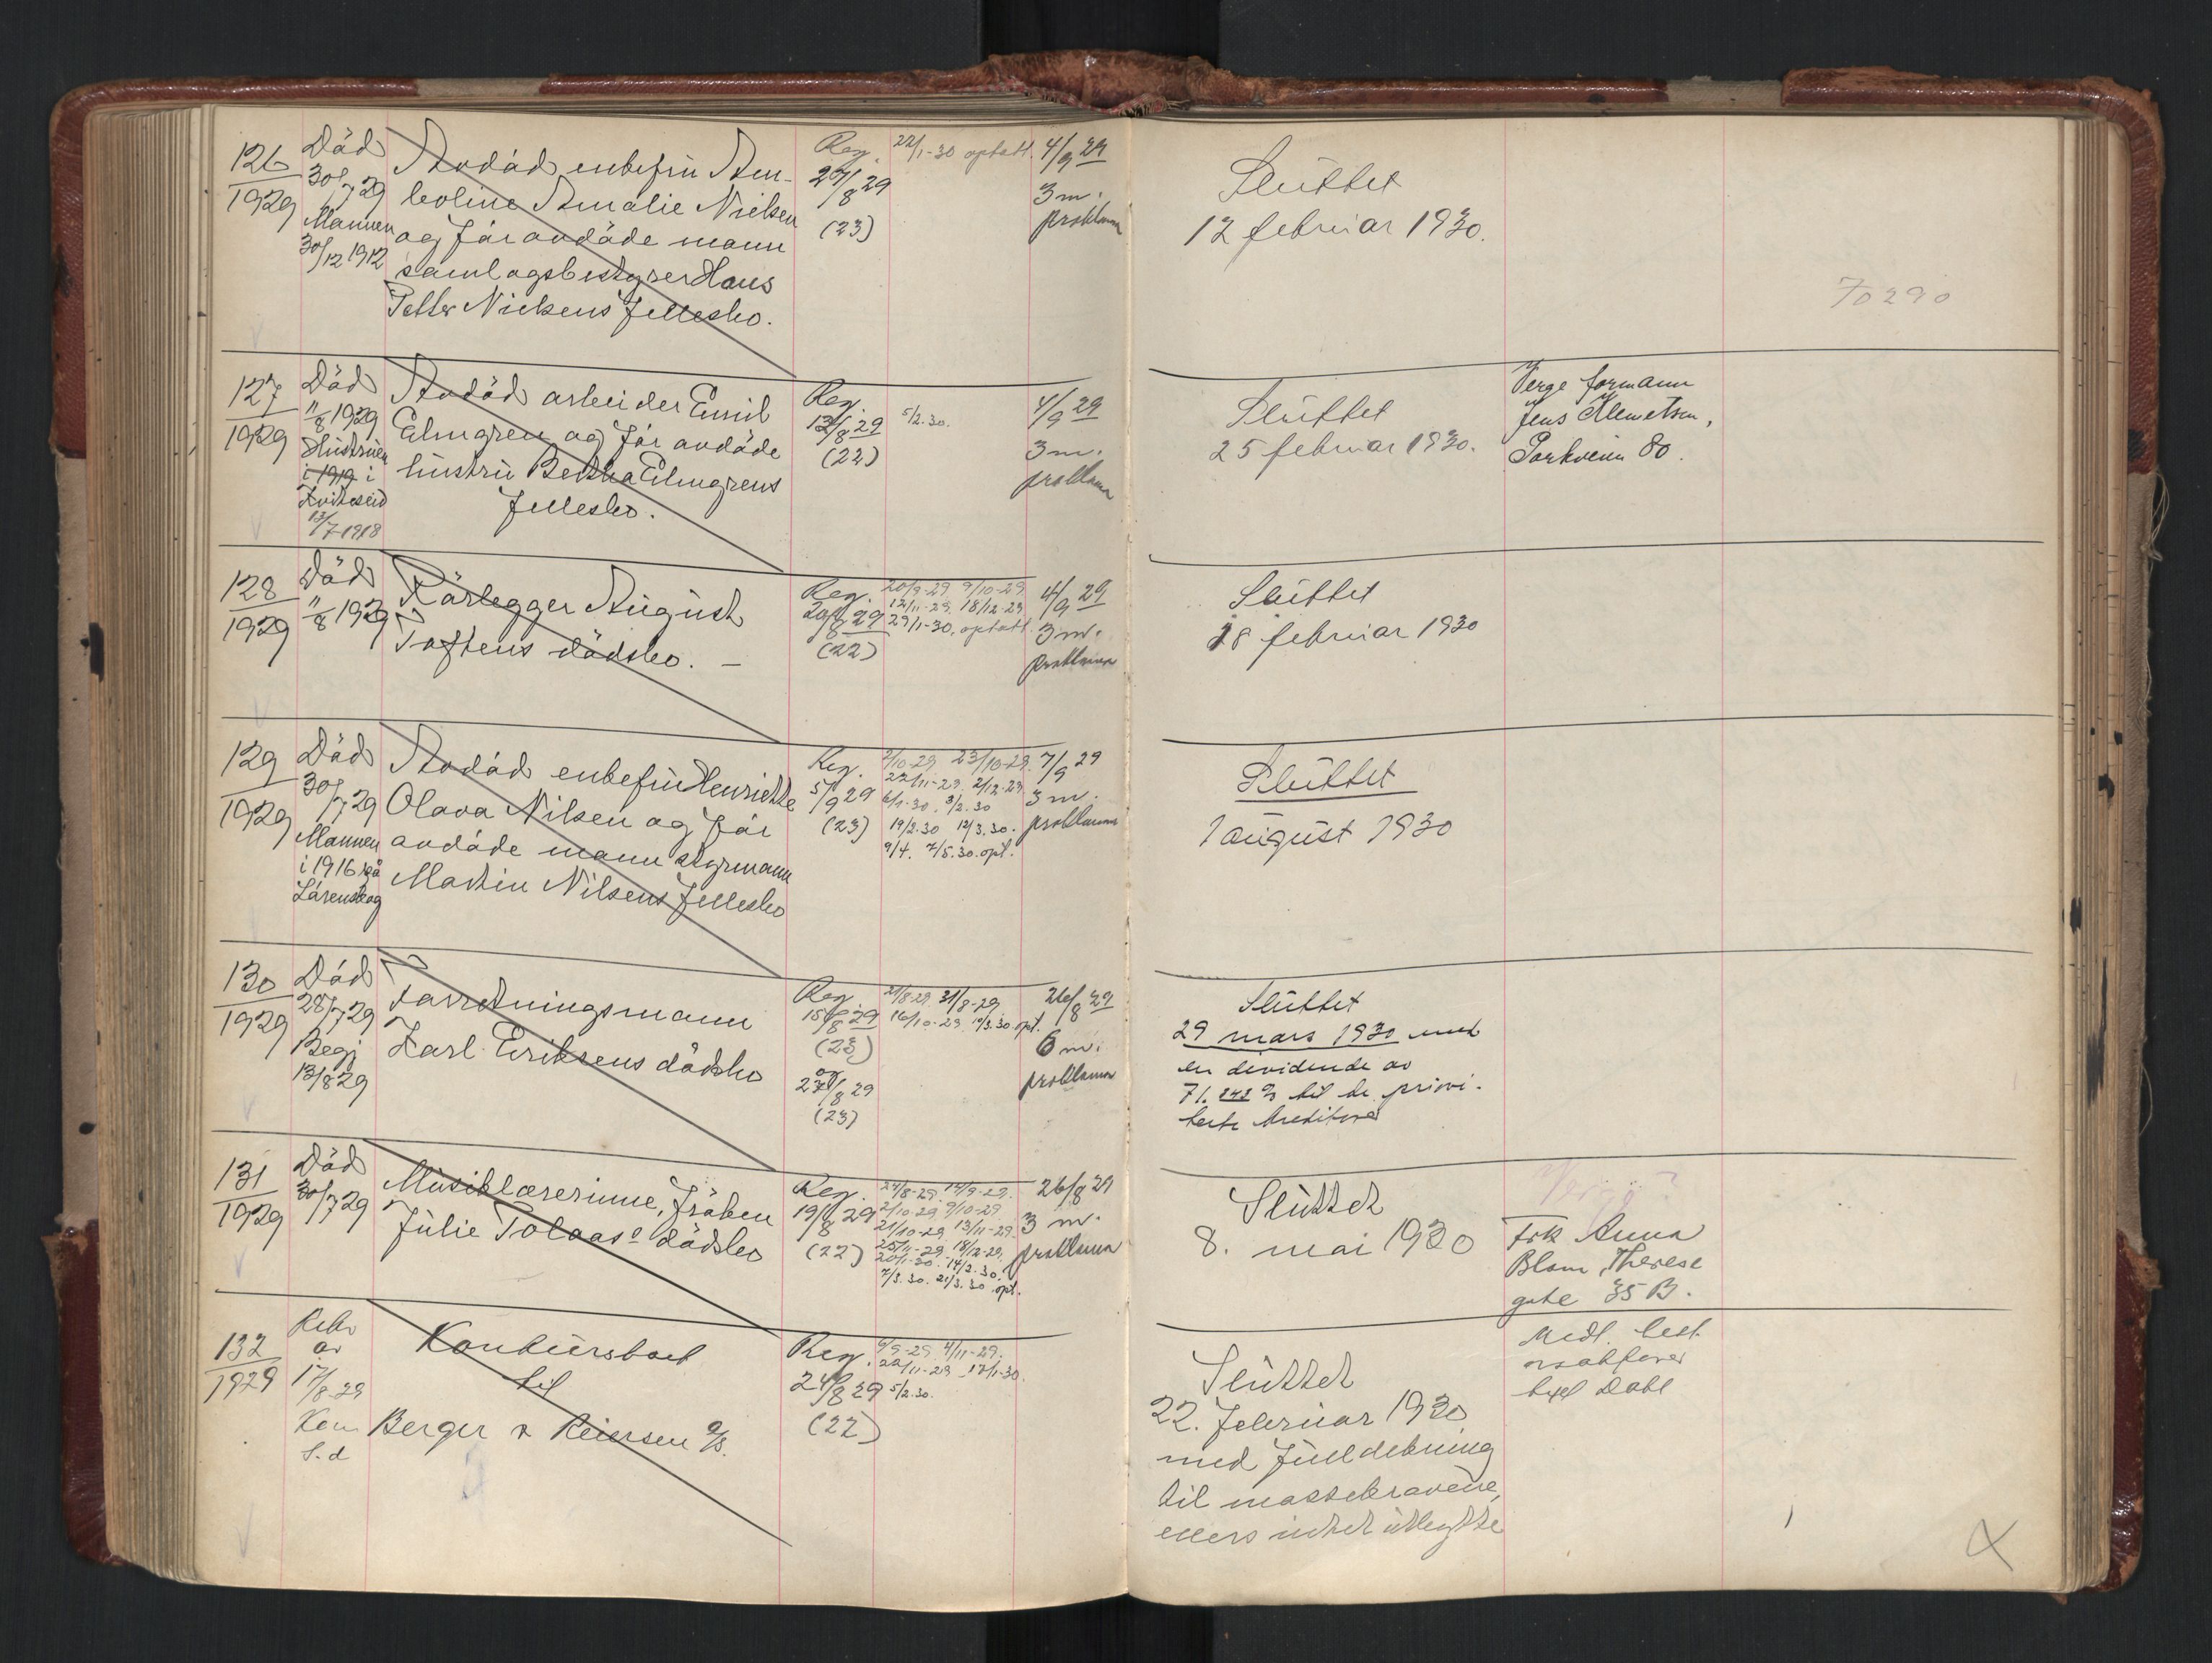 126
1929
Död
30/7 29
Mannen
30/12 1912
Avdöd enkefru An-
boline Amalie Nielsen
og før avdöde mann
samlagsbestyrer Hans
Petter Nielsens fellesbo.
Reg.
27/8 29
(23)
22/1-30 optatt
4/9 29
3 m.
proklama
Sluttet
12 februar 1930.
70290
127
1929
Död
11/8 1929
Hustruen
i 1919 i
Kviteseid
13/7 1918
Avdöd arbeider Emil
Elmgren og før avdöde
hustru Bertha Elmgrens
fellesbo.
Reg.
13/8 29
(22)
5/2.30.
4/9 29
3 m.
proklama
Sluttet
25 februar 1930.
Verge formann
Jens Klemetsen,
Parkveien 80.
128
1929
Död
11/8 1929
Rörlegger August
Toftens dödsbo. –
Reg.
20/8 29
(22)
20/9-29 9/10-29
12/11-29. 18/12-29
29/1-30. optatt
4/9 29
3 m.
proklama
Sluttet
18 februar 1930
129
1929
Död
30/7 29
Mannen
i 1916 på
Lörenskog
Avdöd enkefru Henriette
Olava Nilsen og før
avdöde mann styrmann
Martin Nilsens fellesbo
Reg.
5/9 29
(23)
2/10-29 23/10-29.
22/11-29. 2/12-29
6/1-30. 3/2.30
19/2.30 12/3.30.
9/4. 7/5.30. opt.
7/9 29
3 m.
proklama
Sluttet
1 august 1930
130
1929
Död
28/7 29
Begj
13/8 29
Forretningsmann
Karl Eriksens dödsbo
Reg.
15/8 29
(23)
og
27/8 29
(23)
21/8-29. 31/8-29
16/10-29. 19/3.30 opt.
26/8 29
6 m.
proklama
Sluttet
29 mars 1930 med
en dividende av
71.848 % til de privi-
terte kreditorer
131
1929
Död
30/7 29
Musiklærerinne, fröken
Julie Tolaass dödsbo
Reg.
19/8 29
(22)
24/8-29. 14/9-29.
2/10-29 9/10-29
21/10-29. 13/11-29.
25/11-29. 18/12-29.
20/1-30. 14/2.30.
7/3.30. 21/3.30 opt.
26/8 29
3 m.
proklama
Sluttet
8. mai 1930
Verge?
Frk Anna
Blom, Therese
gate 35 B.
132
1929
Rekv
av
17/8-29
Kom
s.d
Konkursboet
til
Berger & Reiersen A/S.
Reg.
24/8 29
(22)
6/9-29. 4/11-29.
22/11-29. 17/1-30.
5/2.30.
Sluttet
22. februar 1930
med full dekning
til massekravene,
ellers intet utlegg
Midl. best.
o.r.sakfører
Axel Dahl